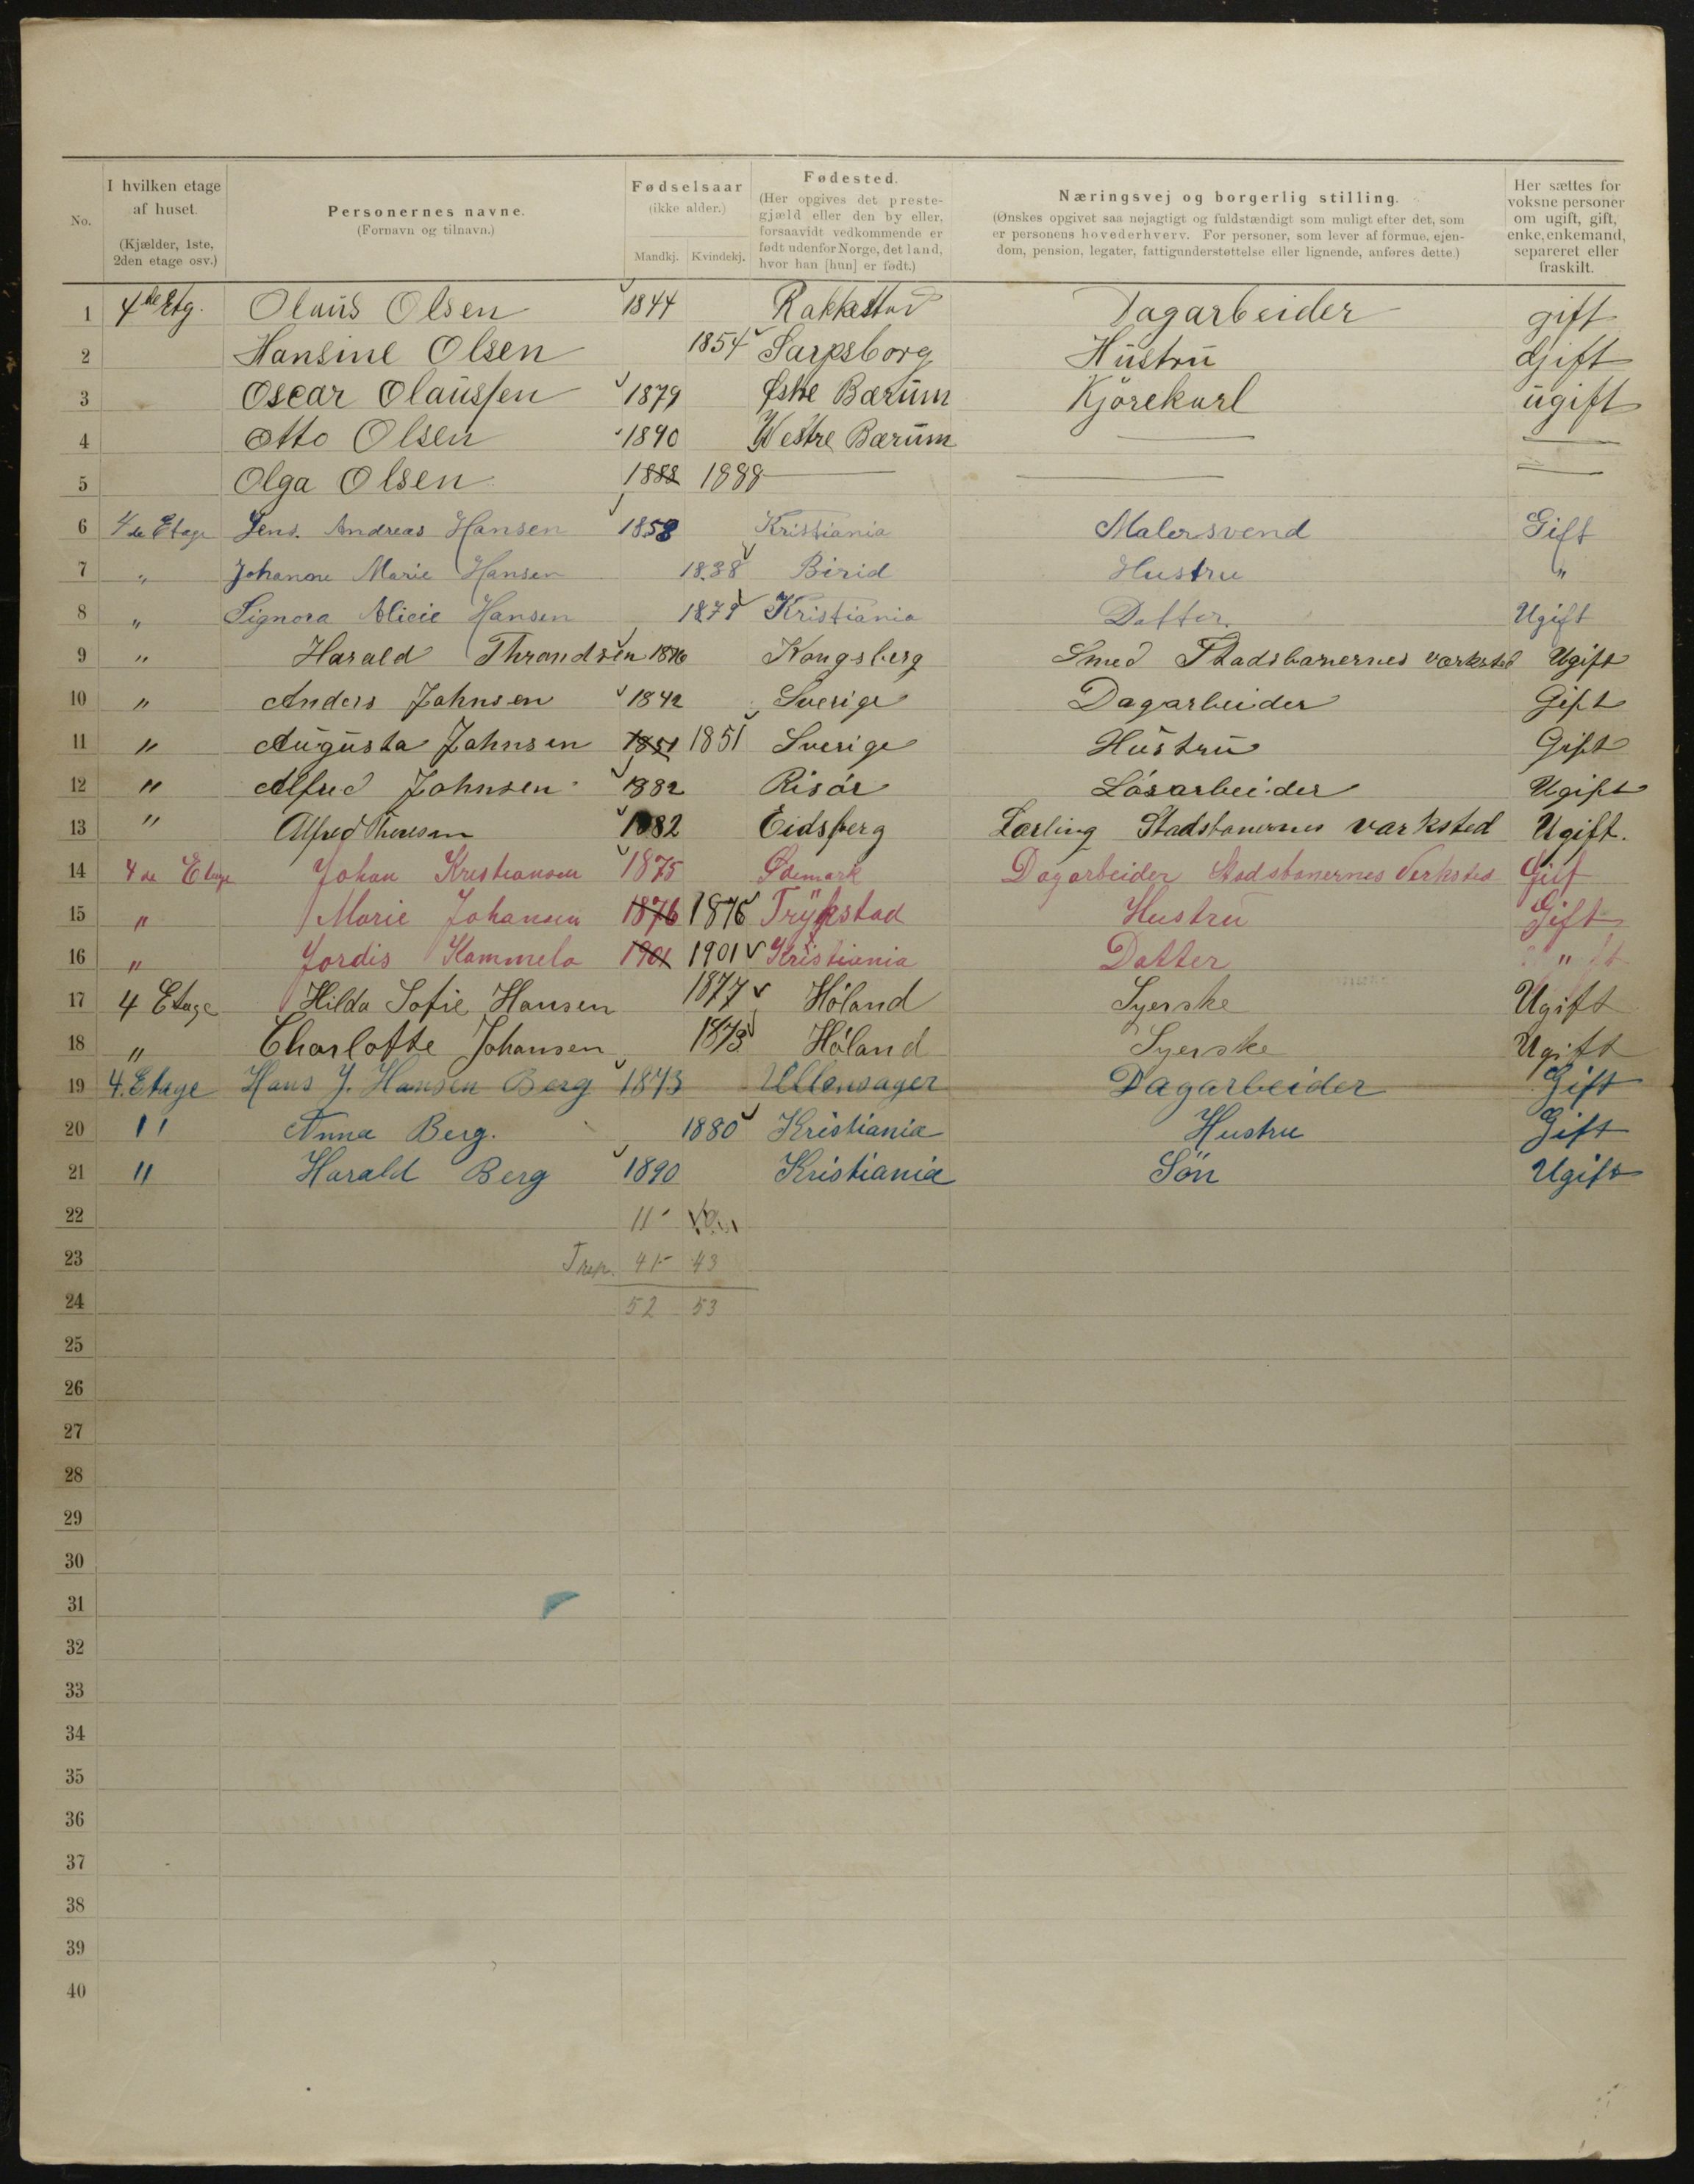 No. I hvilken etage af huset. (Kjælder, 1ste, 2den etage osv.) Personernes navne. (Fornavn og tilnavn.) Fødselsaar (ikke alder.) Mandkj. Kvindekj. Fødested. (Her opgives det prestegjæld eller den by eller, forsaavidt vedkommende er født udenfor Norge, det land, hvor han [hun] er født.) Næringsvej og borgerlig stilling. (Ønskes opgivet saa nøjagtigt og fuldstændigt som muligt efter det, som er personens hovederhverv. For personer, som lever af formue, ejendom, pension, legater, fattigunderstøttelse eller lignende, anføres dette.) Her sættes for voksne personer om ugift, gift, enke, enkemand, separeret eller fraskilt.
1 4de Etg. Olaus Olsen 1844 Rakkestad Dagarbeider gift
2 Hansine Olsen 1854 Sarpsborg Hustru Gift
3 Oscar Olaussen 1879 Østre Bærum Kjörekarl ugift
4 Otto Olsen 1890 Westre Bærum —
5 Olga Olsen 1888 1888 — — —
6 4de Etage Jens. Andreas Hansen 1858 Kristiania Malersvend Gift
7 " Johanne Marie Hansen 1838 Birid Hustru "
8 " Signora Alicie Hansen 1879 Kristiania Datter. Ugift
9 " Harald Throndsen 1876 Kongsberg Smed Stadsbanernes værksted Ugift
10 " Anders Johnsen 1842 Sverige Dagarbeider Gift
11 " Augusta Johnsen 1851 1851 Sverige Hustru Gift
12 " Alfred Johnsen 1882 Risör Lösarbeider Ugift
13 " Alfred Thoresen 1882 Eidsberg Lærling Stadsbanernes værksted Ugift.
14 4de Etage Johan Kristiansen 1875 Ødemark Dagarbeider Stadsbanernes Verksted Gift
15 " Marie Johansen 1876 1876 Trykstad Hustru Gift
16 " Jordis Kammela 1901 1901 Kristiania Datter "
17 4 Etage Hilda Sofie Hansen 1877 Höland Syerske Ugift
18 " Charlotte Johansen 1873 Höland Syerske Ugift
19 4. Etage Hans J. Hansen Berg 1873 Ullensager Dagarbeider Gift
20 " Anna Berg. 1880 Kristiania Hustru Gift
21 " Harald Berg 1890 Kristiania Sön Ugift
22 11
23 Trsp. 41 43
24 52 53
25
26
27
28
29
30
31
32
33
34
35
36
37
38
39
40